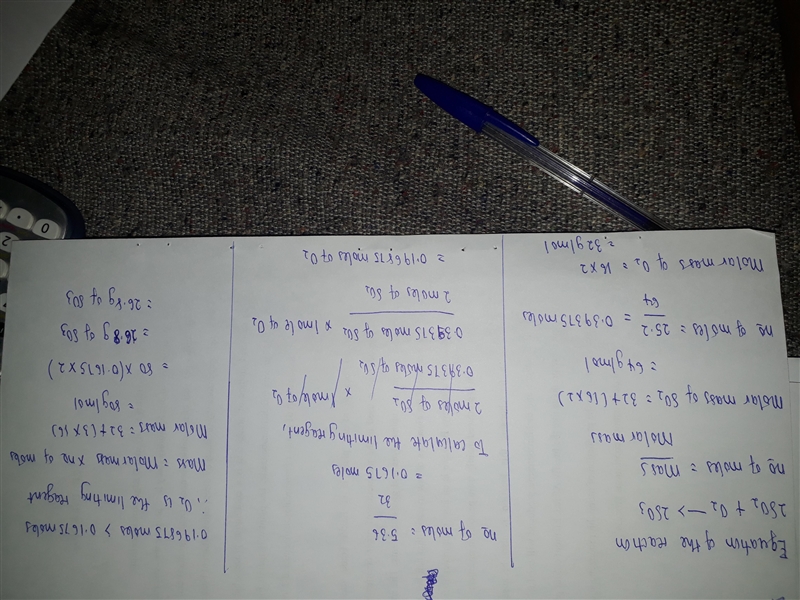 Equation of the reaction
2SO₂ + O₂ —> 2SO₃
no of moles = Mass
Molar mass
Molar mass of SO₂ = 32+(16×2)
= 64g/mol
no of moles = 25.2 = 0.39375 moles
64
Molar mass of O₂ = 16×2
= 32g/mol
no of moles = 5.36
32
= 0.1675 moles
To calculate the limiting reagent,
2 moles of SO₂ × 1mole of O₂
0.39375 moles of SO₂
0.39375 moles of SO₂ × 1mole of O₂
2 moles of SO₂
= 0.196875 moles of O₂
0.196875 moles > 0.1675 moles
∴ O₂ is the limiting reagent
Mass = Molar mass × no of moles
Molar mass = 32+(3×16)
80g/mol
= 80 × (0.1675×2)
= 26.8 g of SO₃
= 26.8g of SO₃
0
.
2